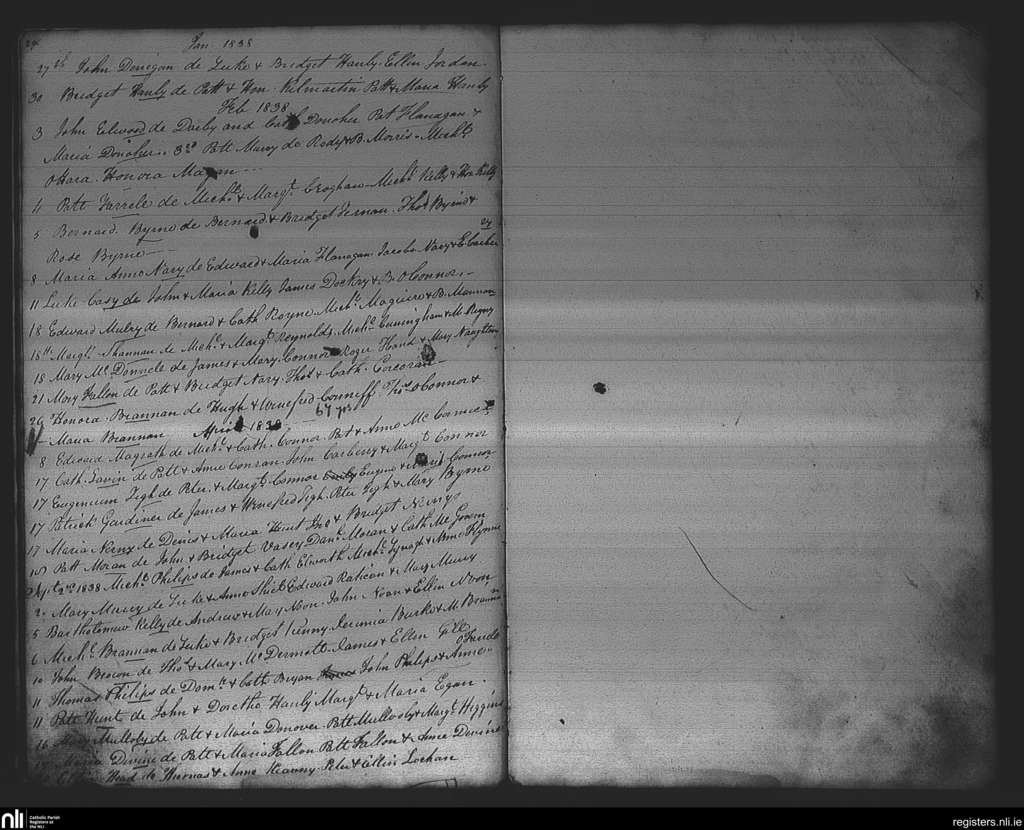 24
Jan 1838
27th John Donigan de Luke & Bridget Hanly. Ellen Jordan
30 Bridget Hanly de Patt & Hon. Kilmartin Patt & Maria Hanly
Feb 1838
3 John Elwood de Darby and Cath Donoher Pat Flanagan &
Maria Donoher. 3rd Patt Murry de Rody & B. Morris - Michl
OHara. Honora
4 Patt Farrele de Michl & Margt Croghan - Michl Kelly & Hon Kelly
5 Bernard Byrne de Bernard & Bridget Ternan. Thos Byrne &
Rose Byrne
24
8 Maria Anne Nary de Edward & Maria Flanagan Jacobo Nary & E.
11 Luke Casy de John & Maria Kelly James Dockry & B. OConnor
18 Edward Mulry de Bernard & Cath Royne Michl Maguire & B. Mannan
18th Margt Shannan de Michl & Margt Reynolds Michl Cuningham & M.
18 Mary Mc de James & Mary Connor Roger Hand & Mary Naughton
21 Mary Fallon de Patt & Bridget Nary. Thos & Cath. Corcoran
26 Honora Brannan de Hugh & Winefred Conneff. Thos OConnor &
Maria Brannan
67
April 1838
8 Edward Magrath de Michl & Cath. Connor Pat & Anne Mc Cormick
17 Cath. Lavin de Patt & Anne Conran John Carberry & Margt Connor
17 Eugenium Tigh de Peter & Margt Connor Eugene & Connor
17 Patrick Gardiner de James & Winefred Tigh. Peter Tigh & Mary Byrne
17 Maria de Denis & Maria Hunt Jno & Bridget
Patt Moran de John & Bridget Vasey Danl Moran & Cath Mc Gowan
2nd 1838 Michl Philips de James & Cath Elworth Michl & Anne Flynne
2. Mary Murry de Luke & Anne Shiel Edward Ratican & Mary Murry
5 Bartholomew Kelly de Andrew & Mary Noon. John Noon & Ellen Noon
6 Michl Brannan de Luke & Bridget Kenny Jeremia Burke & M. Brannan
10 John Brown de Thos & Mary Mc Dermott James & Ellen Gill
11 Thomas Philips de Domk & Cath Bryan John Philips & Anne
11 Patt Hunt de John & Dorotha Hanly Margt & Maria Egan.
16 Mary Mulloly de Patt & Maria Donover Patt Mullooly & Margt Higgins
Maria Divine de Patt & Maria Fallon Patt Fallon & Anne Devine
Ellen Head de Thomas & Anne Kearny Peter & Ellen Lochan
nli
Catholic Parish
Registers at
the NLI
registers.nli.ie